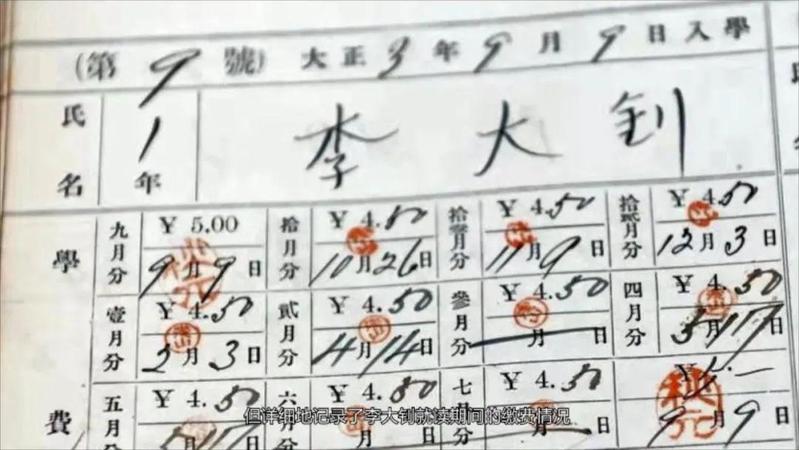 (第 9 號) 大正 3 年 9 月 9 日入學
氏名 1年 李大釗
學費
九月分 ¥ 5.00 拾月分 ¥ 4.50 拾壹月分 ¥ 4.50 拾貳月分 ¥ 4.50
9月9日 10月26日 11月9日 12月3日
壹月分 ¥ 4.50 貳月分 ¥ 4.50 參月分 ¥ 4.50 四月分 ¥ 4.50
2月3日 4月14日 月 日 5月17日
五月分 ¥ 4.50 六 ¥ 4.50 七 ¥ 4.50 ¥
日 日 日 9月9日
但详细地记录了李大钊就读期间的缴费情况